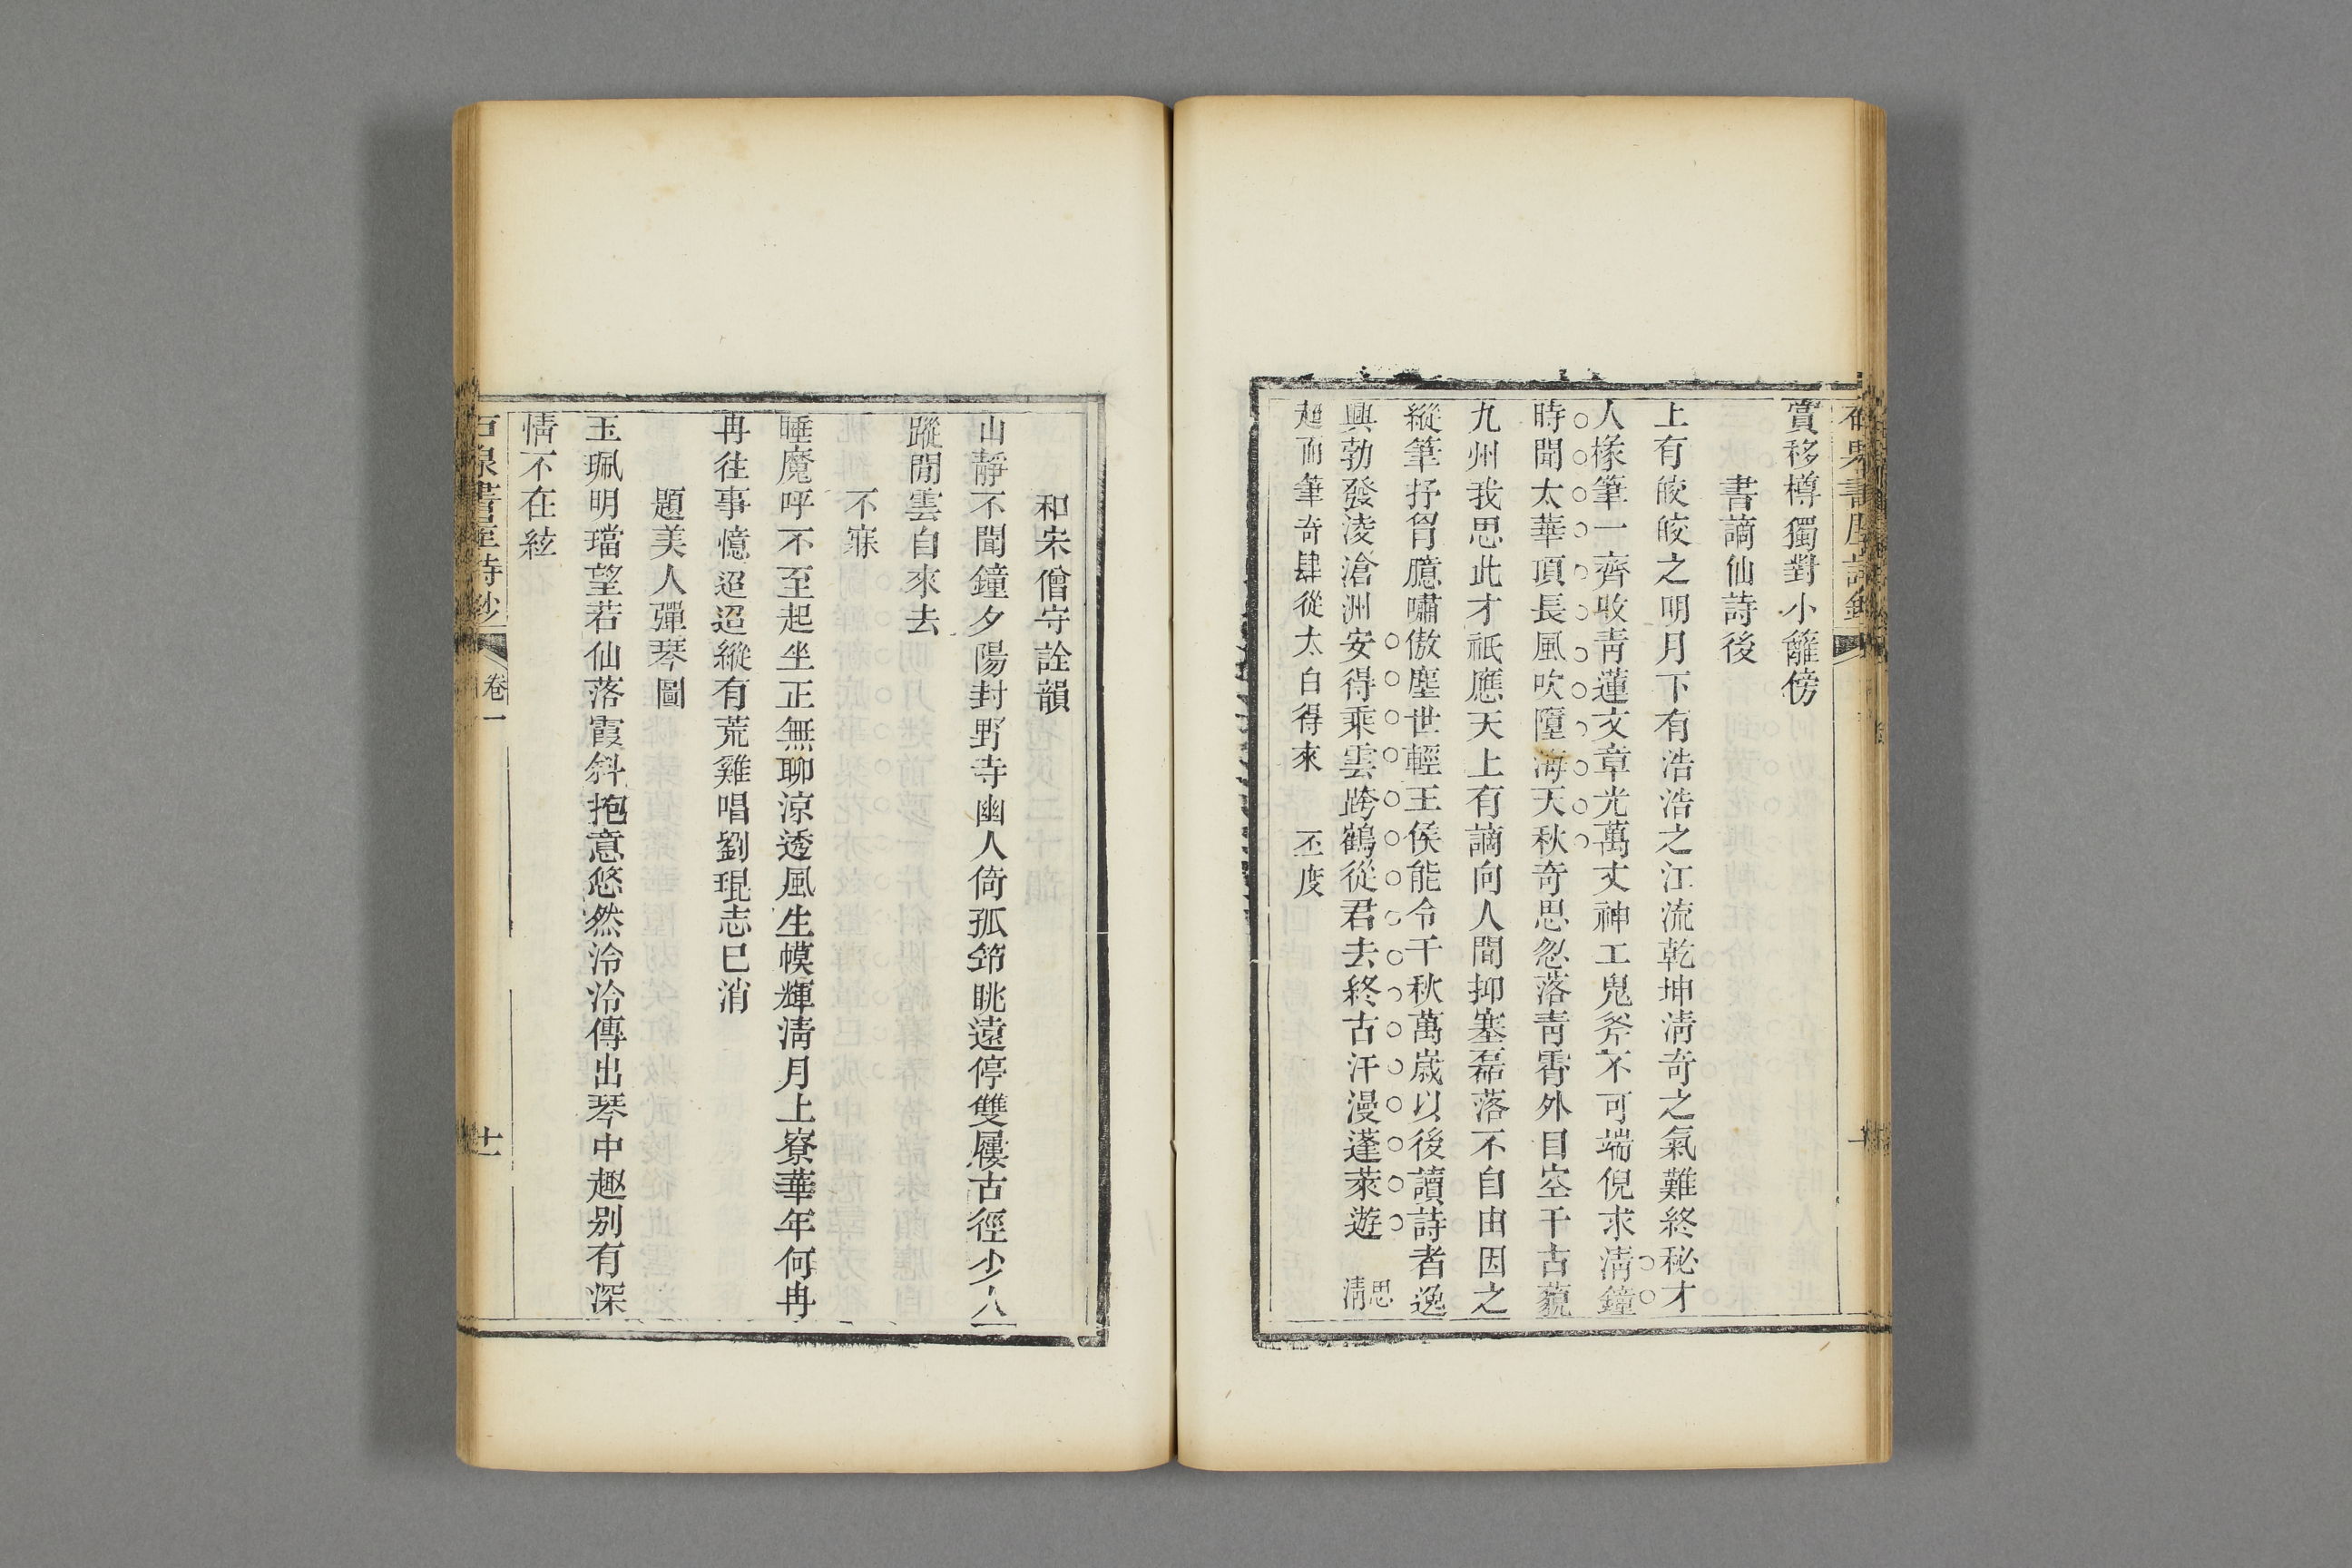 賞移樽獨對小籬傍
書謫仙詩後
上有皎皎之明月下有浩浩之江流乾坤清奇之氣難終秘才
人椽筆一齊收青蓮文章光萬丈神工鬼斧不可端倪求清鐘
時聞太華頂長風吹墮海天秋奇思忽落青霄外目空千古藐
九州我思此才祇應天上有謫向人間抑塞磊落不自由因之
縱筆抒胷臆嘯傲塵世輕王侯能令千秋萬歲以後讀詩者逸
興勃發淩滄洲安得乘雲跨鶴從君去終古汗漫蓬萊遊 思清
超而筆奇肆從太白得來 丕度
和宋僧守詮韻
山靜不聞鐘夕陽封野寺幽人倚孤筇眺遠停雙屨古徑少人
蹤閒雲自來去
不寐
睡魔呼不至起坐正無聊涼透風生幙輝清月上寮華年何冉
冉往事憶迢迢縱有荒雞唱劉琨志已消
題美人彈琴圖
玉珮明璫望若仙落霞斜抱意悠然泠泠傳出琴中趣別有深
情不在絃
石泉書屋詩鈔 卷一 十一